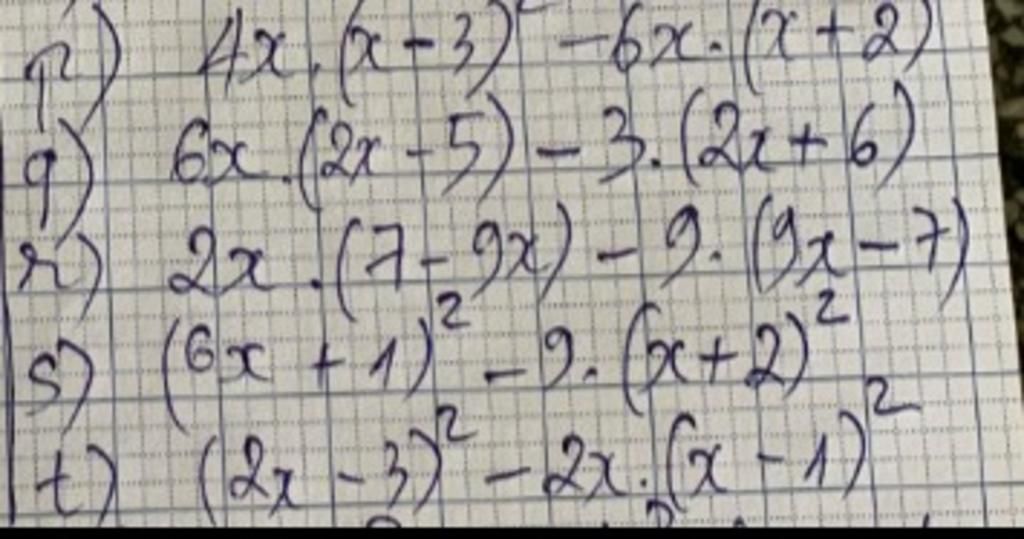 p) 4x.(x-3)² -6x.(x+2)
q) 6x.(2x-5) - 3.(2x+6)
r) 2x.(7-9x) - 9.(9x-7)
s) (6x+1)² - 9.(x+2)²
t) (2x-3)² - 2x.(x-1)²